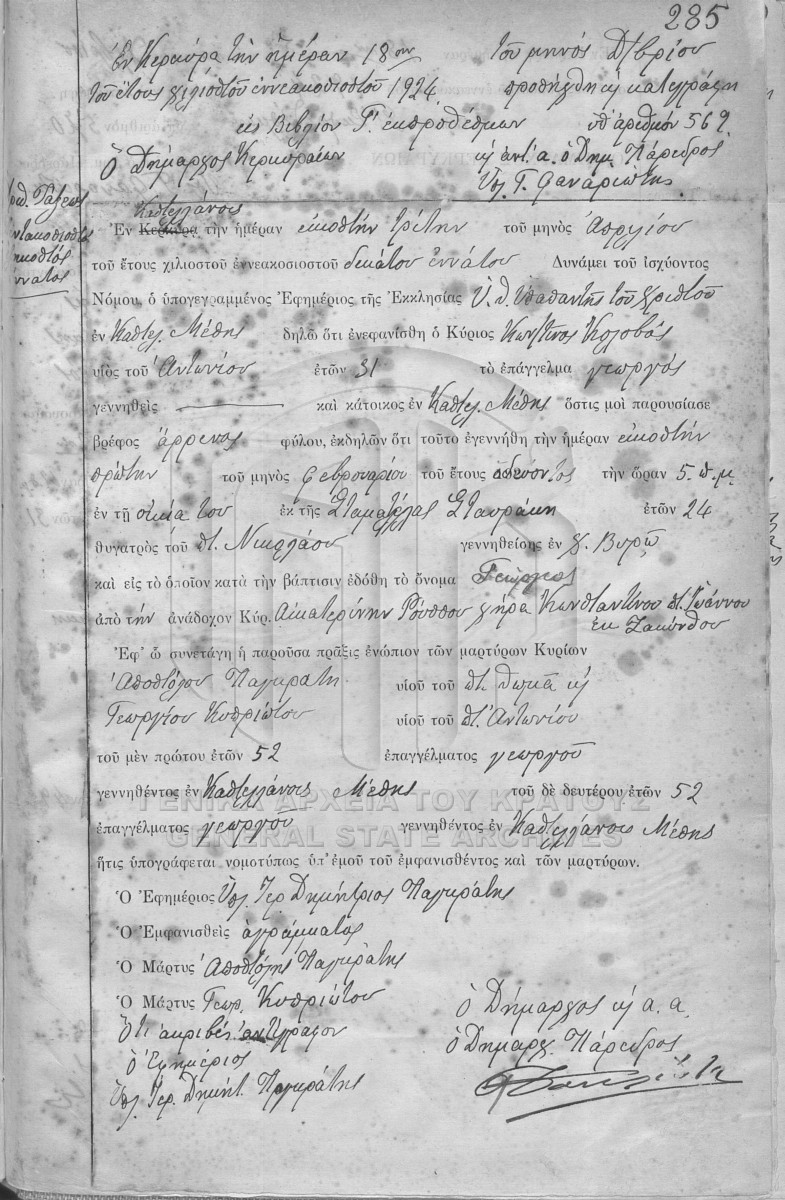 285
Ἐν Κερκύρᾳ τὴν ἡμέραν 18ην τοῦ μηνὸς Δ/βρίου
τοῦ ἔτους χιλιοστοῦ ἐννεακοσιοστοῦ 1924 προσήχθη κ κατεγράφη
εἰς Βιβλίον Γ. ἐκπροθέσμων ὑπ' ἀριθμὸν 569
Ὁ Δήμαρχος Κερκυραίων κ ἀντ. α. ὁ Δημ. Πάρεδρος
Ὑπ. Γ. Φαναριώτης
Καστελλάνοις
Ἐν Κερκύρᾳ τὴν ἡμέραν εἰκοστὴν τρίτην τοῦ μηνὸς Ἀπριλίου
τοῦ ἔτους χιλιοστοῦ ἐννεακοσιοστοῦ δεκάτου ἐννάτου Δυνάμει τοῦ ἰσχύοντος
Νόμου, ὁ ὑπογεγραμμένος Ἐφημέριος τῆς Ἐκκλησίας Ὑπαπαντῆς τοῦ Χριστοῦ
ἐν Καστελ. Μέσης δηλῶ ὅτι ἐνεφανίσθη ὁ Κύριος Κων/τῖνος Κολοβός
υἱὸς τοῦ Ἀντωνίου ἐτῶν 31 τὸ ἐπάγγελμα γεωργός
γεννηθεὶς καὶ κάτοικος ἐν Καστελ. Μέσης ὅστις μοὶ παρουσίασε
βρέφος ἄρρενος φύλου, ἐκδηλῶν ὅτι τοῦτο ἐγεννήθη τὴν ἡμέραν εἰκοστὴν
πρώτην τοῦ μηνὸς Φεβρουαρίου τοῦ ἔτους ὁδεύοντος τὴν ὥραν 5. π. μ.
ἐν τῇ οἰκίᾳ του ἐκ τῆς Σταματέλλας Σταυράκη ἐτῶν 24
θυγατρὸς τοῦ π. Νικολάου γεννηθείσης ἐν χ. Βυρῷ
καὶ εἰς τὸ ὁποῖον κατὰ τὴν βάπτισιν ἐδόθη τὸ ὄνομα Γεώργιος
ἀπὸ τὴν ἀνάδοχον Κύρ. Αἰκατερίνην Ρούσσου χήρα Κωνσταντίνου π. Ἰωάννου
ἐκ Ζακύνθου
Ἐφ' ᾧ συνετάγη ἡ παροῦσα πρᾶξις ἐνώπιον τῶν μαρτύρων Κυρίων
Ἀποστόλου Παγκράτη υἱοῦ τοῦ π. Θωμᾶ κ
Γεωργίου Κυπριώτου υἱοῦ τοῦ π. Ἀντωνίου
τοῦ μὲν πρώτου ἐτῶν 52 ἐπαγγέλματος γεωργοῦ
γεννηθέντος ἐν Καστελλάνοις Μέσης τοῦ δὲ δευτέρου ἐτῶν 52
ἐπαγγέλματος γεωργοῦ γεννηθέντος ἐν Καστελλάνοις Μέσης
ἥτις ὑπογράφεται νομοτύπως ὑπ' ἐμοῦ τοῦ ἐμφανισθέντος καὶ τῶν μαρτύρων.
Ὁ Ἐφημέριος Ὑπ. Ἱερ. Δημήτριος Παγκράτης
Ὁ Ἐμφανισθεὶς ἀγράμματος
Ὁ Μάρτυς Ἀποστόλης Παγκράτης
Ὁ Μάρτυς Γεωρ. Κυπριώτου
Ὅτι ἀκριβὲς ἀντίγραφον
ὁ Ἐφημέριος
Ὑπ. Ἱερ. Δημήτ. Παγκράτης
Ὁ Δήμαρχος κ α. α.
ὁ Δημαρχ. Πάρεδρος
ΓΕΝΙΚΑ ΑΡΧΕΙΑ ΤΟΥ ΚΡΑΤΟΥΣ
GENERAL STATE ARCHIVES